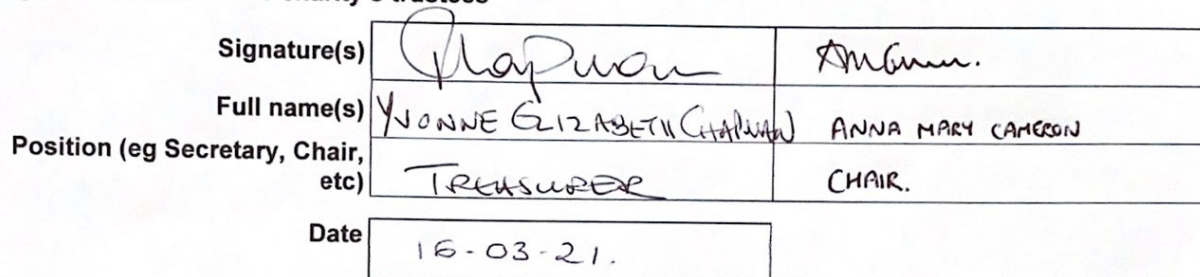 Signature(s) Chapman AMCameron.
Full name(s) YVONNE ELIZABETH CHAPMAN ANNA MARY CAMERON
Position (eg Secretary, Chair,
etc) TREASURER CHAIR.
Date 16-03-21.